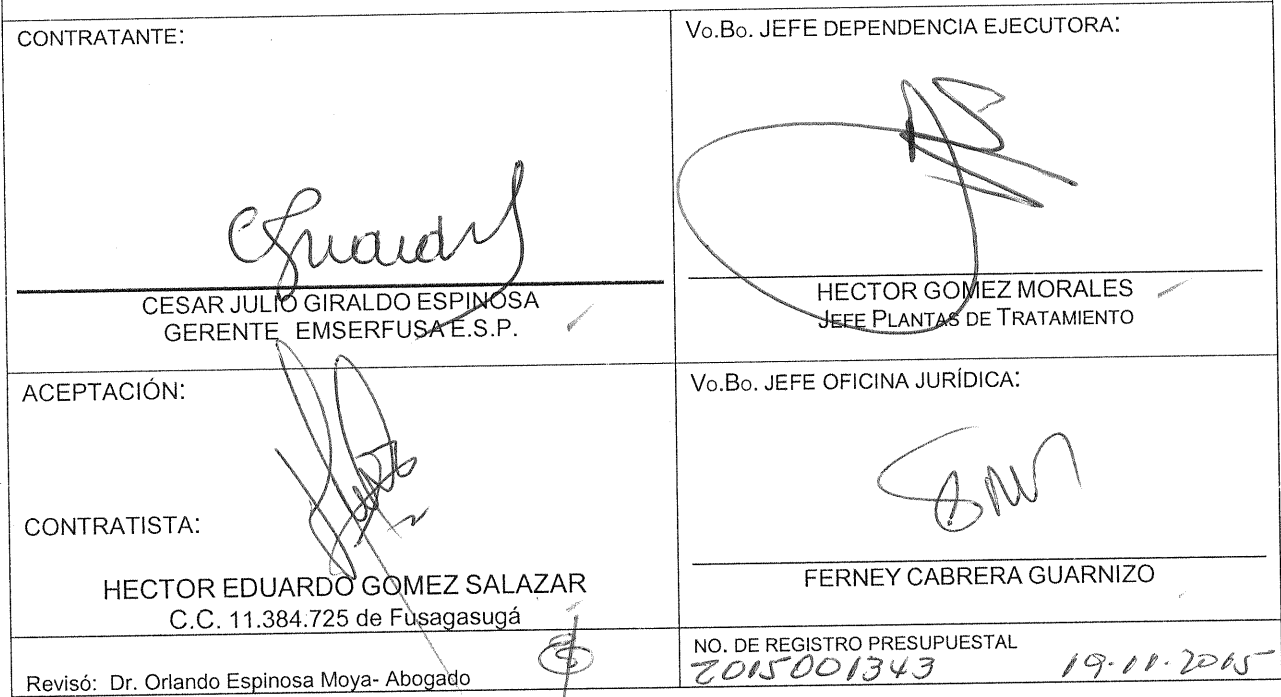 CONTRATANTE:
CESAR JULIO GIRALDO ESPINOSA
GERENTE EMSERFUSA E.S.P.
Vo.Bo. JEFE DEPENDENCIA EJECUTORA:
HECTOR GOMEZ MORALES
JEFE PLANTAS DE TRATAMIENTO
ACEPTACIÓN:
CONTRATISTA:
HECTOR EDUARDO GOMEZ SALAZAR
C.C. 11.384.725 de Fusagasugá
Vo.Bo. JEFE OFICINA JURÍDICA:
FERNEY CABRERA GUARNIZO
Revisó: Dr. Orlando Espinosa Moya- Abogado
NO. DE REGISTRO PRESUPUESTAL
2015001343 19-11-2015